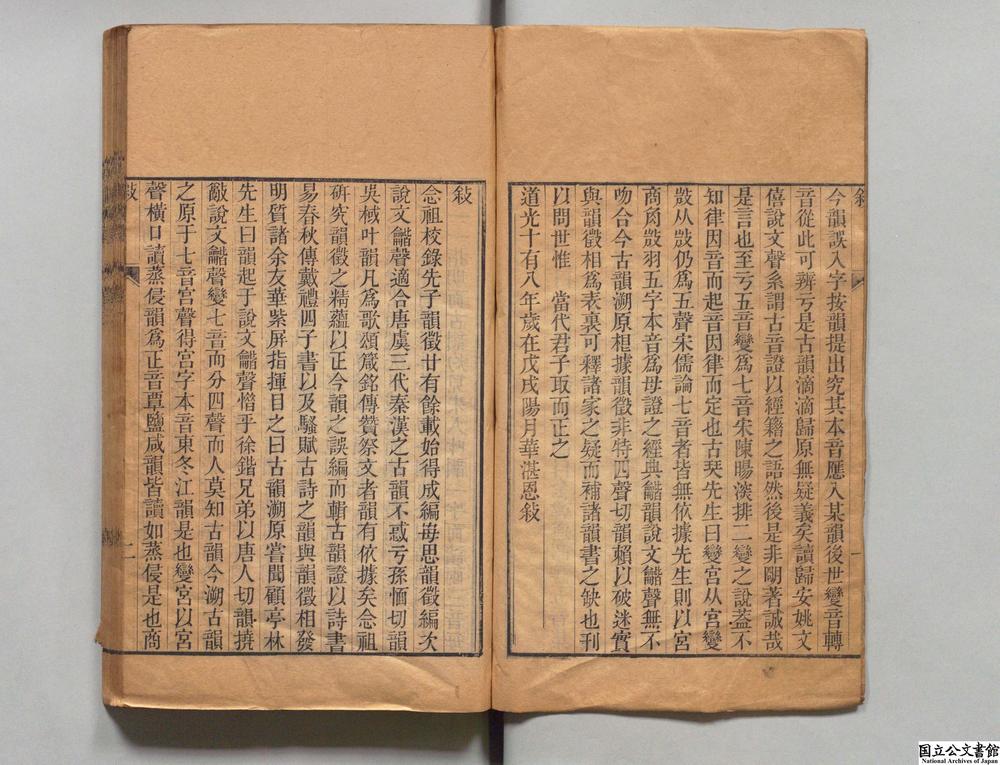 敍
今韻誤入字按韻提出究其本音應入某韻後世變音轉
音從此可辨亏是古韻滴滴歸原無疑義矣讀歸安姚文
僖說文聲系謂古音證以經籍之語然後是非朙著誠哉
是言也至亏五音變爲七音宋陳暘淡排二變之說葢不
知律因音而起音因律而定也古琹先生曰變宫从宫變
㪇从㪇仍爲五聲宋儒論七音者皆無依據先生則以宮
商角㪇羽五字本音爲母證之經典龤韻說文龤聲無不
吻合今古韻溯原梍據韻徵非特四聲切韻賴以破迷實
與韻徵相爲表裏可釋諸家之疑而補諸韻書之缺也刊
以問世惟 當代君子取而正之
道光十有八年歲在戊戌陽月華湛恩敍
一
敍
念祖校錄先子韻徵廿有餘載始得成編每思韻徵編次
說文龤聲適合唐虞三代秦漢之古韻不惑亏孫愐切韻
吳棫叶韻凡爲歌頌箴銘傳贊祭文者韻有依據矣念祖
研究韻徵之精蘊以正今韻之誤編而輯古韻證以詩書
易春秋傳戴禮四子書以及騷賦古詩之韻與韻徵相發
明質諸余友華紫屏指揮目之曰古韻溯原嘗聞顧亭林
先生曰韻起于說文龤聲惜乎徐鍇兄弟以唐人切韻撓
敵說文龤聲變七音而分四聲而人莫知古韻今溯古韻
之原于七音宮聲得宮字本音東冬江韻是也變宮以宮
聲橫口讀蒸侵韻爲正音覃鹽咸韻皆讀如蒸侵是也商
敍
二
国立公文書館
National Archives of Japan